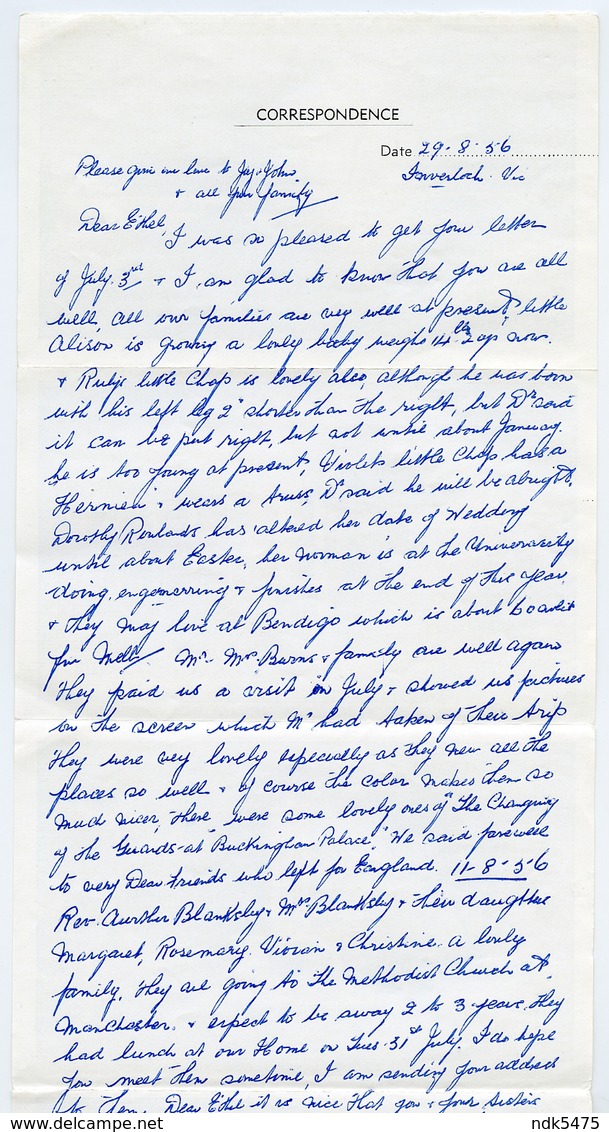 CORRESPONDENCE
Date 29.8.56
Inverloch. Vic
Please give our love to Joy & John
& all your family
Dear Ethel,
I was so pleased to get your letter
of July 3rd & I am glad to know that you are all
well, all our families are very well at present, little
Alison is growing a lovely baby weighs 14 lb 2 ozs now.
& Rubys little Chap is lovely also, although he was born
with his left leg 2" shorter than the right, but Dr said
it can be put right, but not until about January.
he is too young at present, Violets little Chap has a
"Hernien" & wears a truss, Dr said he will be alright,
Dorothy Rowlands has altered her date of Wedding
until about Easter, her Norman is at the Univeresity
doing engenerring & finishes at the end of this year,
& they may live at Bendigo which is about 60 miles
from Melb. Mr Mrs Burns & family are well again
They paid us a visit in July & showed us pictures
on the screen which Mr had taken of their trip
They were very lovely especially as they new all the
places so well & of course the color makes them so
much nicer, there were some lovely ones of "The Changing
of the Guards at Buckingham Palace," We said farewell
to very Dear Friends who left for England. 11-8-56
Rev. Aurther Blanksby & Mrs Blanksby & their daughters
Margaret, Rosemary. Vivian & Christine. a lovely
family. They are going to the Methodist Church at
Manchester. & expect to be away 2 to 3 years, They
had lunch at our Home on Tues. 31st July. I do hope
you meet them sometime, I am sending your address
to them. Dear Ethel it is nice that you & your sisters
ndk5475